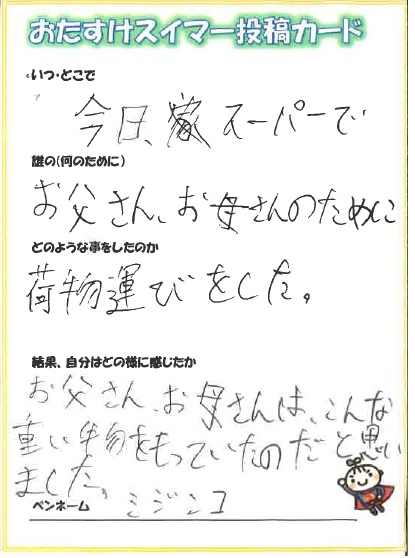 おたすけスイマー投稿カード
いつ・どこで
今日、家スーパーで
誰の(何のために)
お父さん、お母さんのために
どのような事をしたのか
荷物運びをした。
結果、自分はどの様に感じたか
お父さん、お母さんは、こんな
重い物をもっていたのだと思い
ました。
ミジンコ
ペンネーム